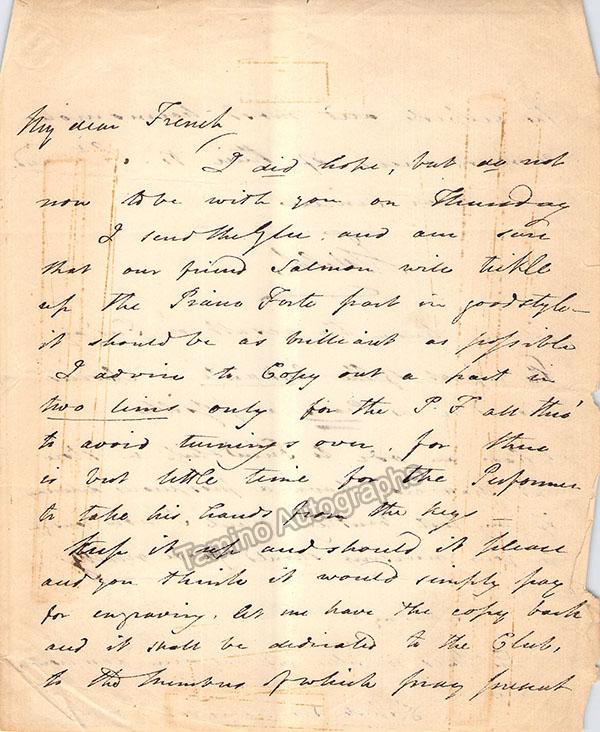 My dear French
I did hope, but do not
now to be with you on Thursday
I send the Glee. and am sure
that our friend Salmon will tickle
up the Piano Forte part in good style—
it should be as brilliant as possible
I advise to Copy out a part in
two lines only for the P. F all thro'
to avoid turnings over. for there
is but little time for the Performer
to take his hands from the keys —
Keep it up and should it please
and you think it would simply pay
for engraving. let me have the copy back
and it shall be dedicated to the Club,
to the Members of which pray present
Tamino Autographs